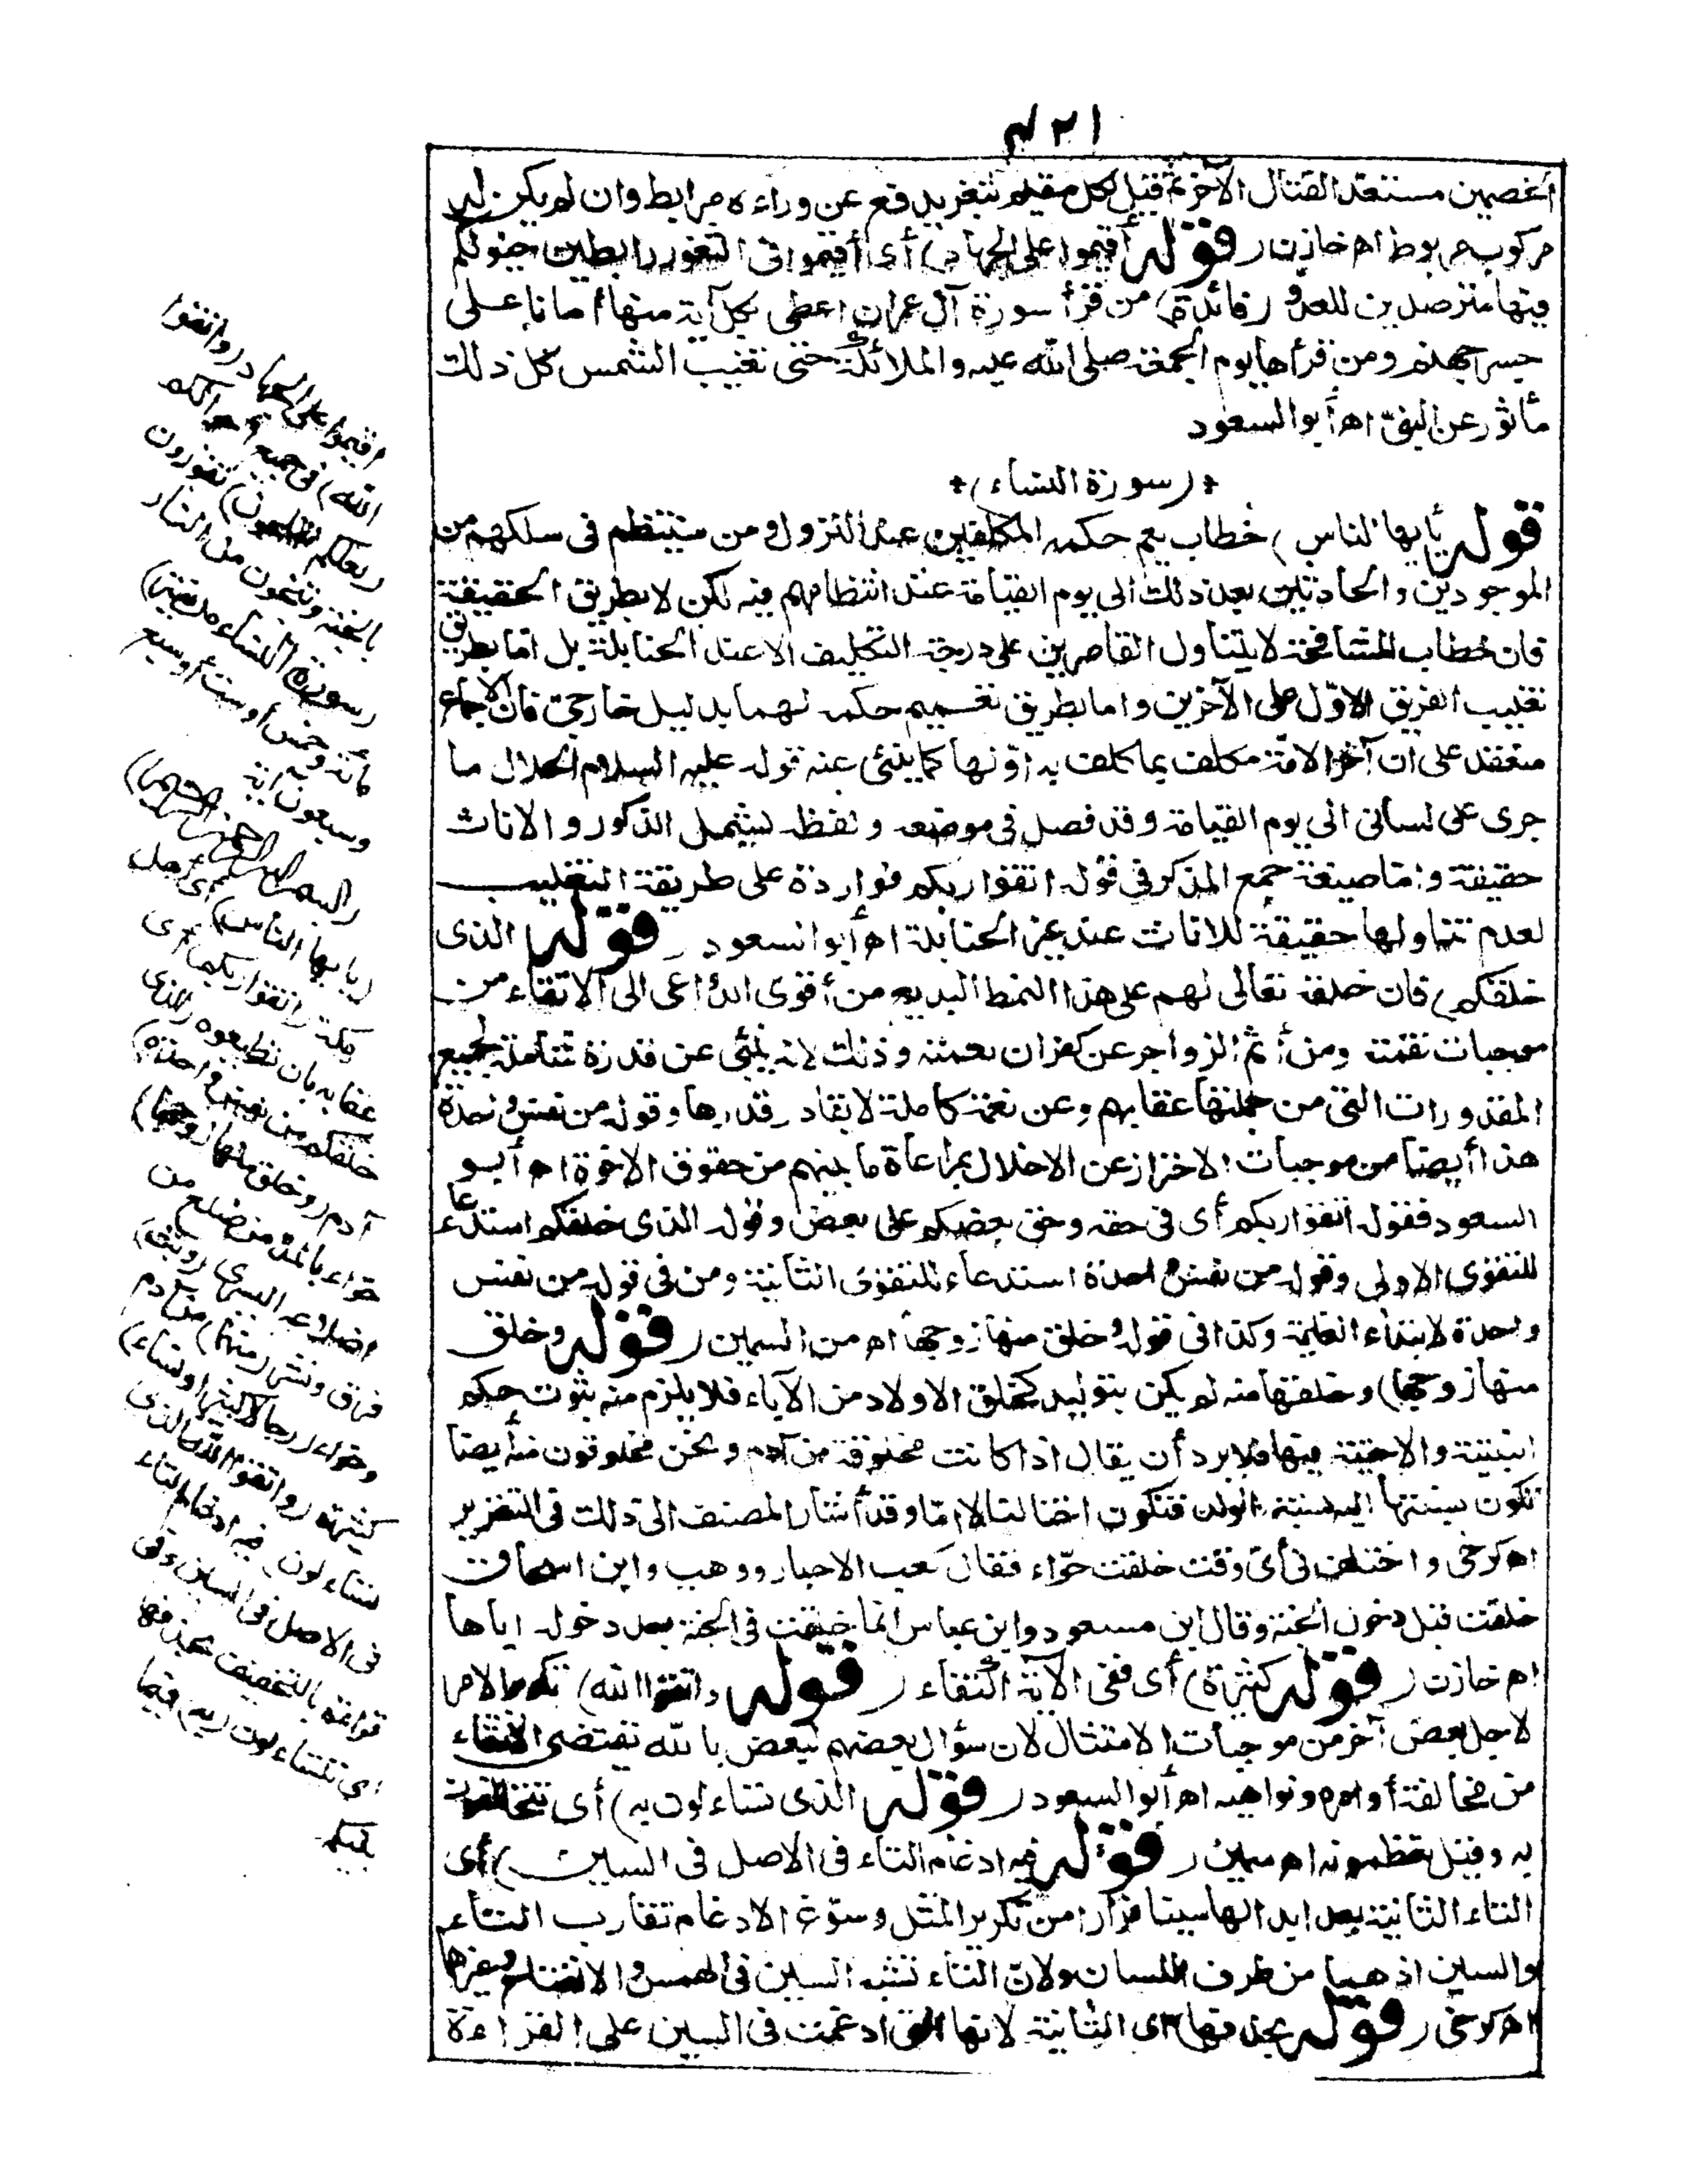 ٤٢١
الخصمين مستعد لقتال الآخر ثم قيل لكل مقيم بثغر يدفع عن وراءه مرابط وان لم يكن له
مركوب مربوط اه خازن (قوله أقيموا على الجهاد) أى أقيموا فى الثغور رابطين خيولكم
فيها مترصدين للعدو (فائدة) من قرأ سورة آل عمران اعطى بكل آية منها أمانا على
جسر جهنم ومن قرأها يوم الجمعة صلى الله عليه والملائكة حتى تغيب الشمس كل ذلك
مأثور عن النبى اه أبو السعود
(سورة النساء)
قوله يأيها الناس) خطاب يعم حكمه المكلفين عند النزول ومن سينتظم فى سلكهم من
الموجودين والحادثين بعد ذلك الى يوم القيامة عند انتظامهم فيه لكن لا بطريق الحقيقة
فان خطاب المشافهة لا يتناول القاصرين على درجة التكليف الا عند الحنابلة بل اما بطريق
تغليب الفريق الاول على الآخرين واما بطريق تعميم حكمه لهما بدليل خارجى فان الاجماع
منعقد على ان آخر الامة مكلف بما كلف به اولها كما ينبئ عنه قوله عليه السلام الحلال ما
جرى على لسانى الى يوم القيامة وقد فصل فى موضعه ولفظه ليشمل الذكور والاناث
حقيقة واما صيغة جمع المذكر فى قوله اتقوا ربكم فواردة على طريقة التغليب
لعدم تناولها حقيقة للاناث عند غير الحنابلة اه أبو السعود (قوله الذى
خلقكم) فان خلقه تعالى لهم على هذا النمط البديع من أقوى الدواعى الى الاتقاء من
موجبات نقمته ومن أتم الزواجر عن كفران نعمته وذلك لانه ينبئ عن قدرة شاملة لجميع
المقدورات التى من جملتها عقابهم وعن نعمة كاملة لا يقادر قدرها وقوله من نفس واحدة
هذا أيضا من موجبات الاحتراز عن الاخلال بمراعاة ما بينهم من حقوق الاخوة اه أبو
السعود فقوله اتقوا ربكم أى فى حقه وحق بعضكم على بعض وقوله الذى خلقكم استدعاء
للتقوى الاولى وقوله من نفس واحدة استدعاء للتقوى الثانية ومن فى قوله من نفس
واحدة لابتداء الغاية وكذا فى قوله وخلق منها زوجها اه من السمين (قوله وخلق
منها زوجها) وخلقها منه لم يكن بتوليد كخلق الاولاد من الآباء فلا يلزم منه ثبوت حكم
البنتية والاختية فيها فلا يرد أن يقال اذا كانت مخلوقة من آدم ونحن مخلوقون منه أيضا
تكون نسبتها اليه نسبة الولد فتكون اختا لنا لا اما وقد أشار المصنف الى ذلك فى التقرير
اه كرخى واختلف فى أى وقت خلقت حواء فقال كعب الاحبار ووهب وابن اسحاق
خلقت قبل دخول الجنة وقال ابن مسعود وابن عباس انما خلقت فى الجنة بعد دخوله اياها
اه خازن (قوله كثيرة) أى ففى الآية اكتفاء (قوله واتقوا الله) تكرير للامر
لاجل بعض آخر من موجبات الامتثال لان سؤال بعضهم لبعض بالله يقتضى الاتقاء
من مخالفة أوامره ونواهيه اه أبو السعود (قوله الذى تساءلون به) أى تتحالفون
به وقيل تعظمونه اه سمين (قوله فيه ادغام التاء فى الاصل فى السين) أى
التاء الثانية بعد ابدالها سينا فرارا من تكرير المثل وسوغ الادغام تقارب التاء
والسين اذ هما من طرف اللسان ولان التاء تشبه السين فى الهمس والانفتاح وغيرها
اه كرخى (قوله بحذفها) أى الثانية لانها التى ادغمت فى السين على القراءة
اقيموا على الجهاد (واتقوا
الله) فى جميع احوالكم
(لعلكم تفلحون) تفوزون
بالجنة وتنجون من النار
(سورة النساء مدنية)
مائة وخمس أو ست أو سبع
وسبعون آية
(بسم الله الرحمن الرحيم)
(يايها الناس) أى اهل
مكة (اتقوا ربكم) اى
عقابه بان تطيعوه (الذى
خلقكم من نفس واحدة)
آدم (وخلق منها زوجها)
حواء بالمد من ضلع من
اضلاعه اليسرى (وبث)
فرق ونشر (منهما) من آدم
وحواء (رجالا كثيرا ونساء)
كثيرة (واتقوا الله الذى
تساءلون) فيه ادغام التاء
فى الاصل فى السين وفى
قراءة بالتخفيف بحذفها
اى تتساءلون (به) فيما
بينكم